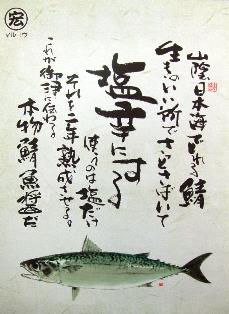 宏
マルコウ
山陰、日本海でとれる鯖
生きのいい所でさっとさばいて
塩辛にする
使うのは塩だけ
それを二年熟成させる。
これが御津に伝わる
本物鯖魚醤だ